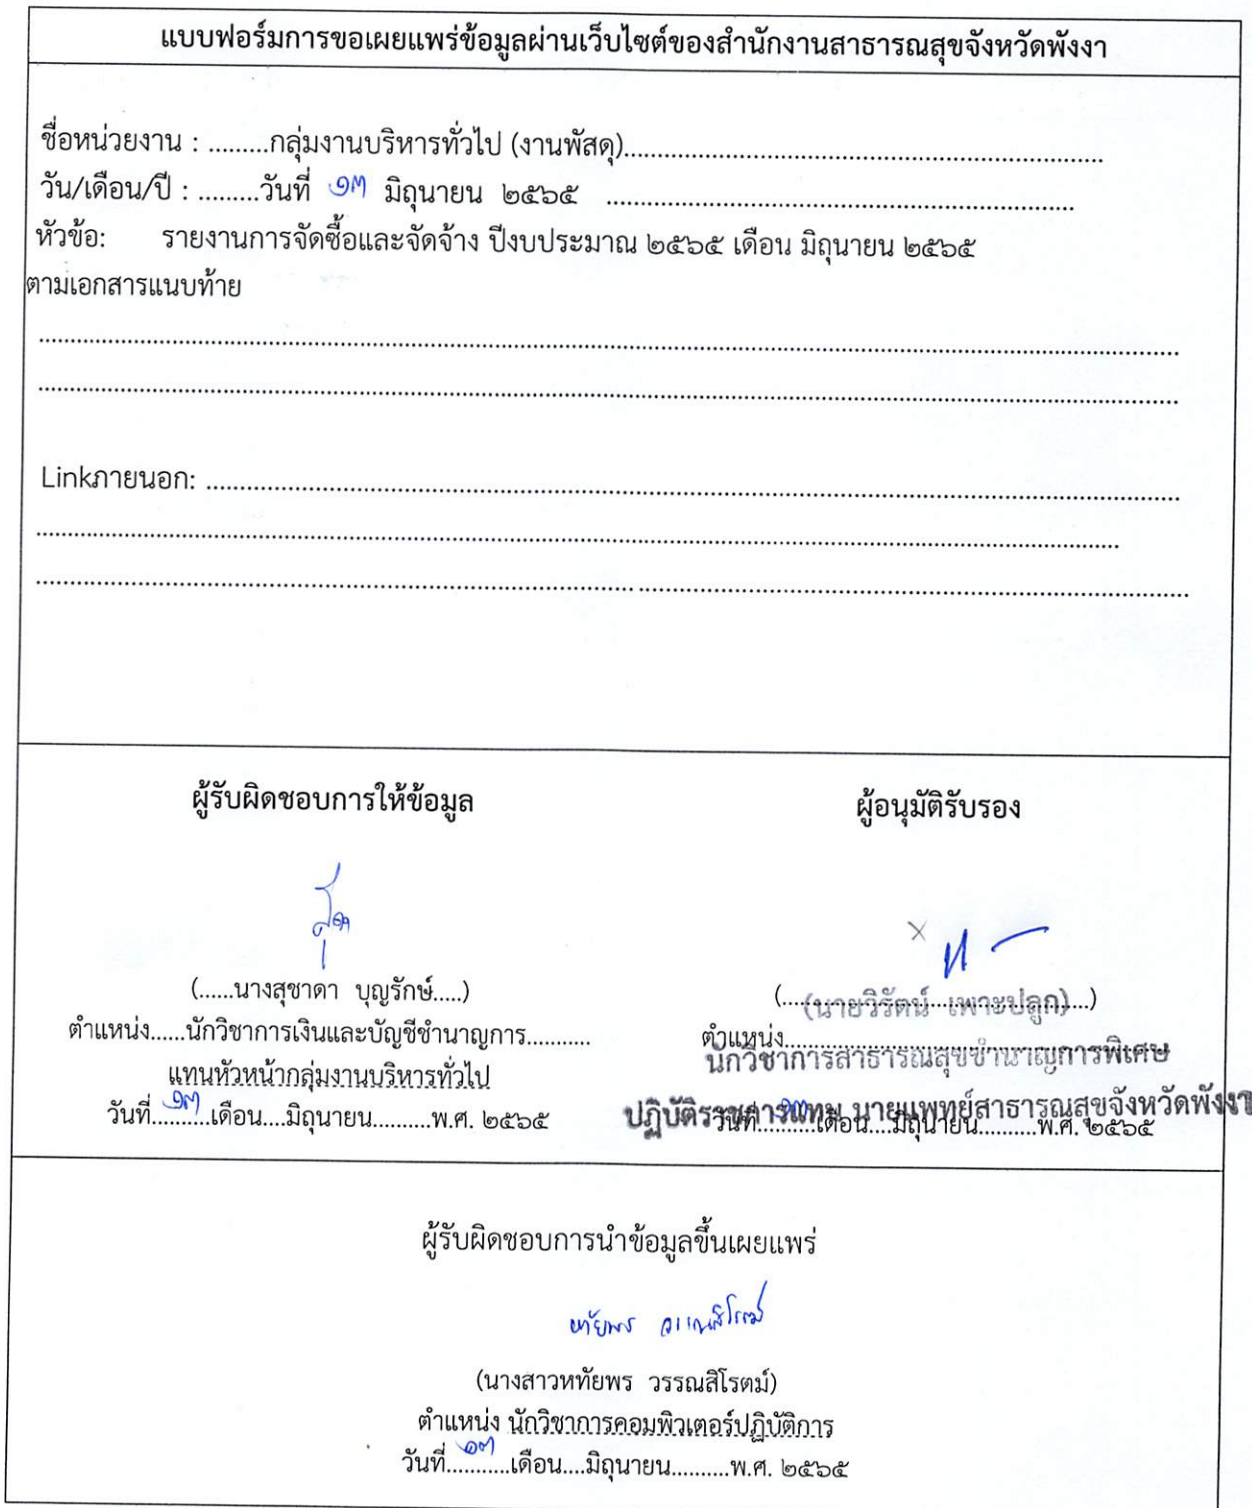 แบบฟอร์มการขอเผยแพร่ข้อมูลผ่านเว็บไซต์ของสำนักงานสาธารณสุขจังหวัดพังงา
ชื่อหน่วยงาน : .........กลุ่มงานบริหารทั่วไป (งานพัสดุ)........................................................................
วัน/เดือน/ปี : .........วันที่ ๑๓ มิถุนายน ๒๕๖๕ ......................................................................
หัวข้อ: รายงานการจัดซื้อและจัดจ้าง ปีงบประมาณ ๒๕๖๕ เดือน มิถุนายน ๒๕๖๕
ตามเอกสารแนบท้าย
Linkภายนอก: ..................................................................................................................
ผู้รับผิดชอบการให้ข้อมูล
(......นางสุชาดา บุญรักษ์.....)
ตำแหน่ง......นักวิชาการเงินและบัญชีชำนาญการ...........
แทนหัวหน้ากลุ่มงานบริหารทั่วไป
วันที่...๑๓...เดือน....มิถุนายน.........พ.ศ. ๒๕๖๕
ผู้อนุมัติรับรอง
(นายวิรัตน์ เพาะปลูก)
ตำแหน่ง
นักวิชาการสาธารณสุขชำนาญการพิเศษ
ปฏิบัติราชการแทน นายแพทย์สาธารณสุขจังหวัดพังงา
วันที่...๑๓...เดือน....มิถุนายน.........พ.ศ. ๒๕๖๕
ผู้รับผิดชอบการนำข้อมูลขึ้นเผยแพร่
หทัยพร วรรณสิโรตม์
(นางสาวหทัยพร วรรณสิโรตม์)
ตำแหน่ง นักวิชาการคอมพิวเตอร์ปฏิบัติการ
วันที่...๑๓...เดือน....มิถุนายน.........พ.ศ. ๒๕๖๕